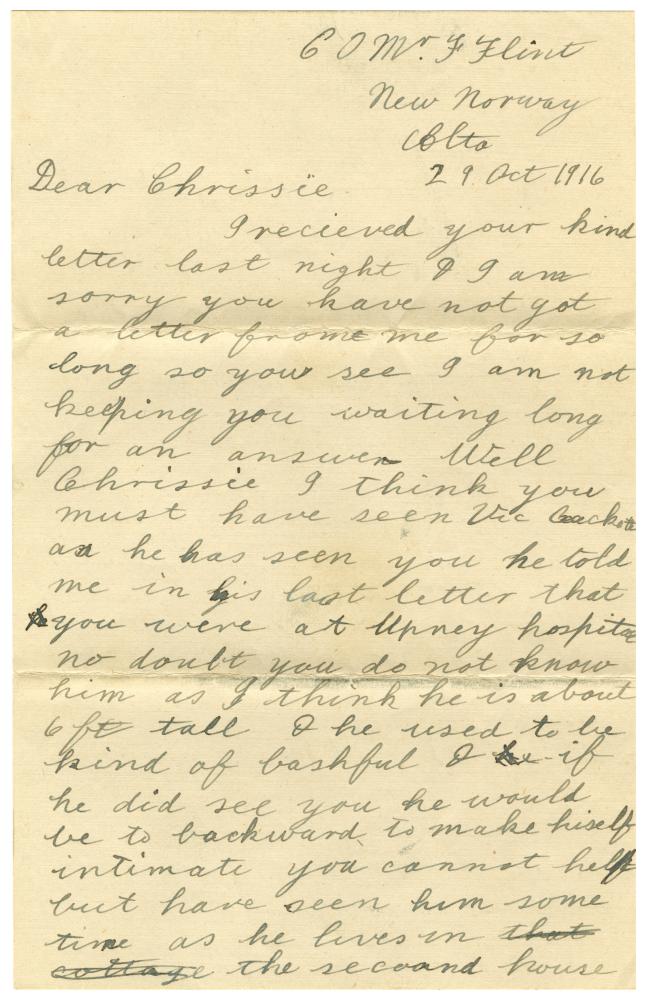 C O Mr. F Flint
New Norway
Alta
29 Oct 1916
Dear Chrissie
I recieved your kind
letter last night & I am
sorry you have not got
a letter from me for so
long so you see I am not
keeping you waiting long
for an answer Well
Chrissie I think you
must have seen Vic
as he has seen you he told
me in his last letter that
you were at Upney hospital
no doubt you do not know
him as I think he is about
6 ft tall & he used to be
kind of bashful & if
he did see you he would
be to backward to make hiself
intimate you cannot help
but have seen him some
time as he lives in that
cottage the secoond house